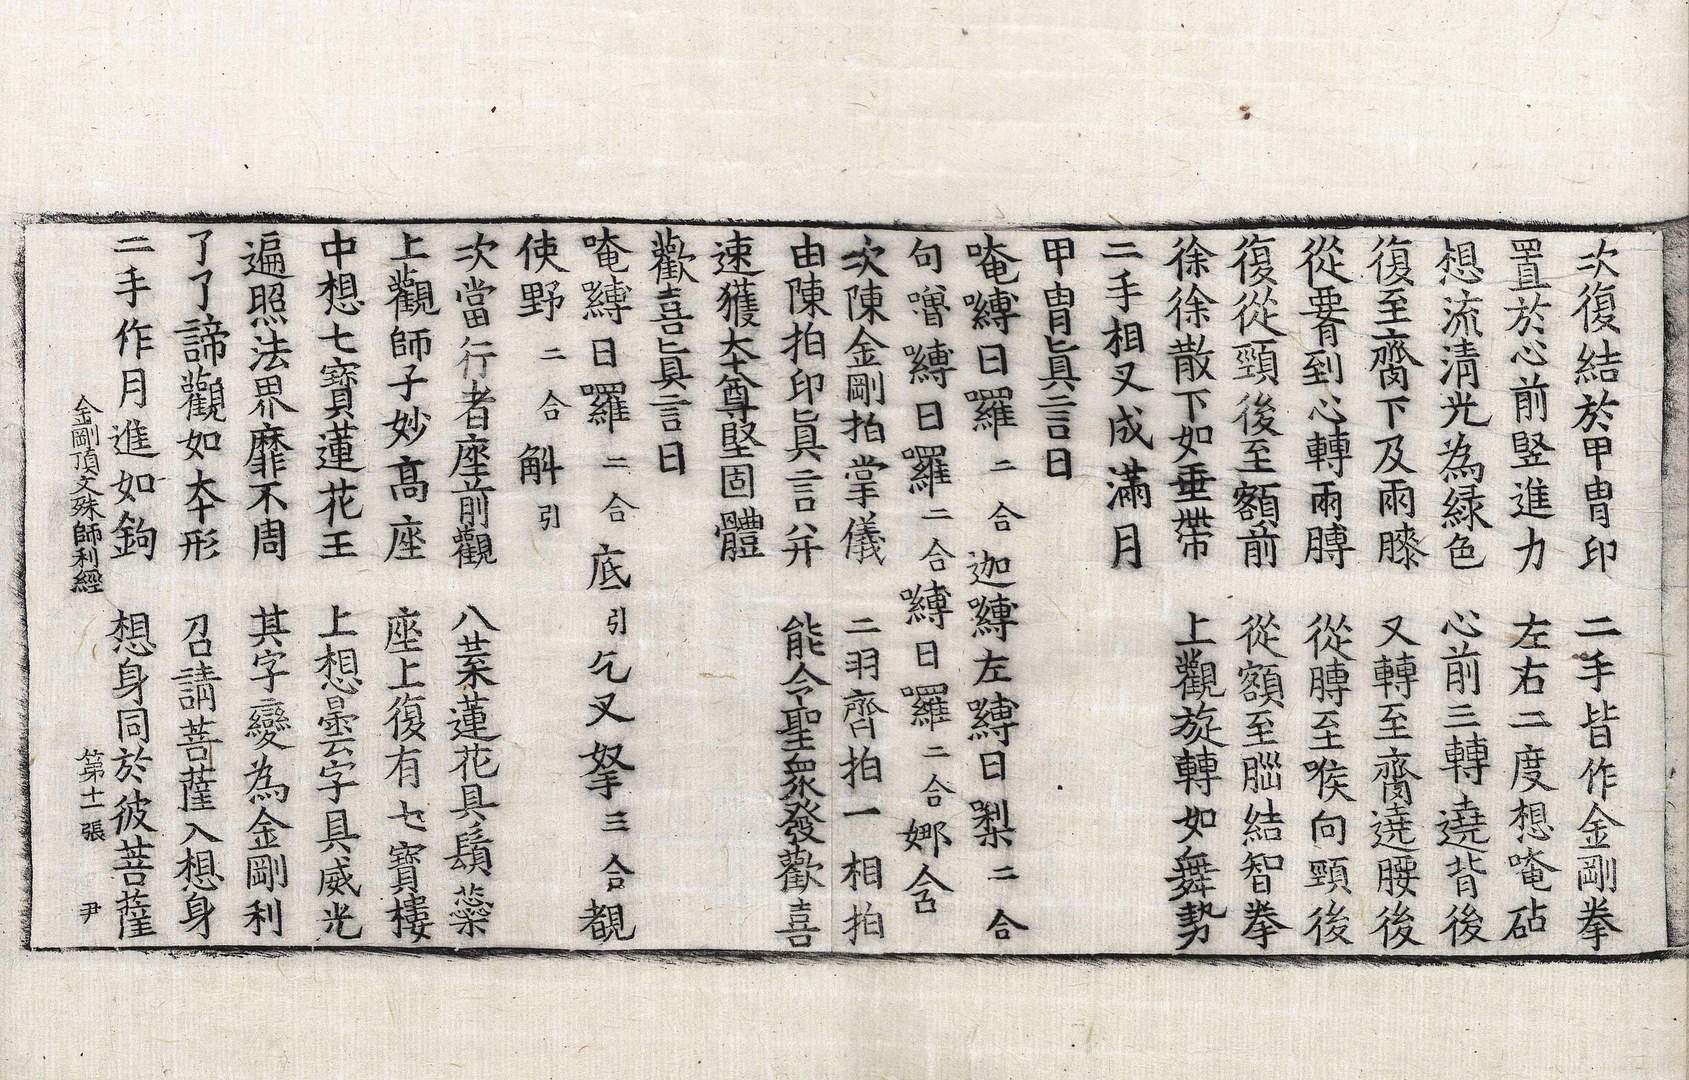 次復結於甲冑印　二手皆作金剛拳
置於心前竪進力　左右二度想唵砧
想流清光為緑色　心前三轉遶背後
復至齊下及兩膝　又轉至齊遶腰後
從要到心轉兩膊　從膊至喉向頸後
復從頸後至額前　從額至腦結智拳
徐徐散下如垂帶　上觀旋轉如舞勢
二手相叉成滿月
甲冑眞言曰
唵嚩日囉二合迦嚩左嚩日𠼝二合
句嚕嚩日囉二合嚩日囉二合娜含
次陳金剛拍掌儀　二羽齊拍一相拍
由陳拍印眞言并　能令聖衆發歡喜
速獲夲尊堅固體
歡喜眞言曰
唵嚩日囉二合底引乞叉拏三合覩
使野二合斛引
次當行者座前觀　八葉蓮花具鬚蘂
上觀師子妙髙座　座上復有七寶樓
中想七寶蓮花王　上想曇字具威光
遍照法界靡不周　其字變為金剛利
了了諦觀如夲形　召請菩薩入想身
二手作月進如鉤　想身同於彼菩薩
金剛頂文殊師利經　第十一張　尹